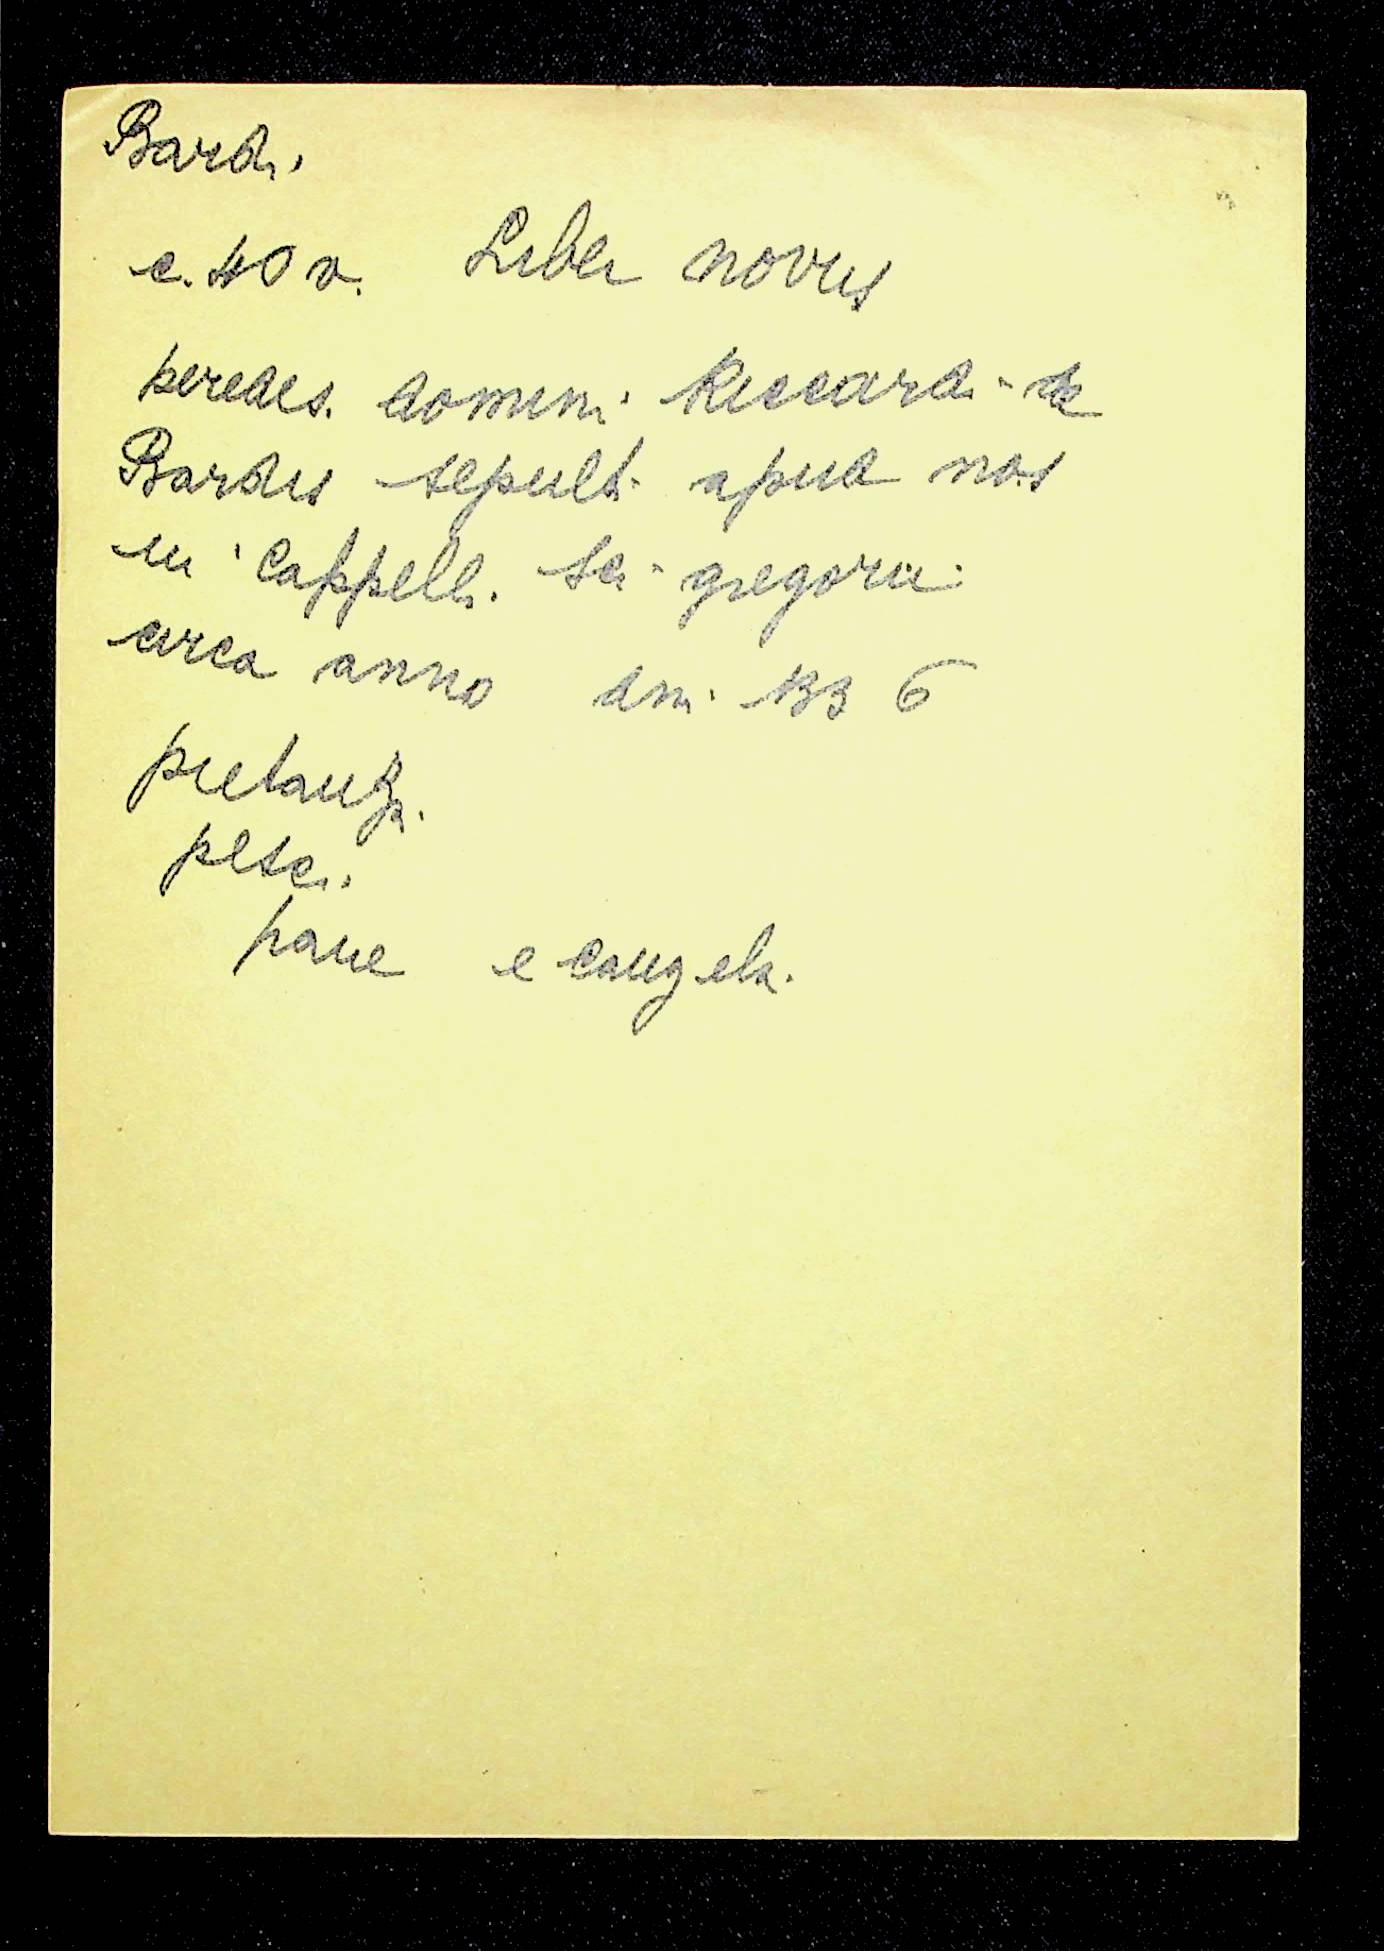 Bardi
c. 40 v. Liber novus
heredes domini Riccardi de
Bardis sepulti apud nos
in cappella sci gregorii
circa anno dni 133 6
pietanza
pesci
pane e candela